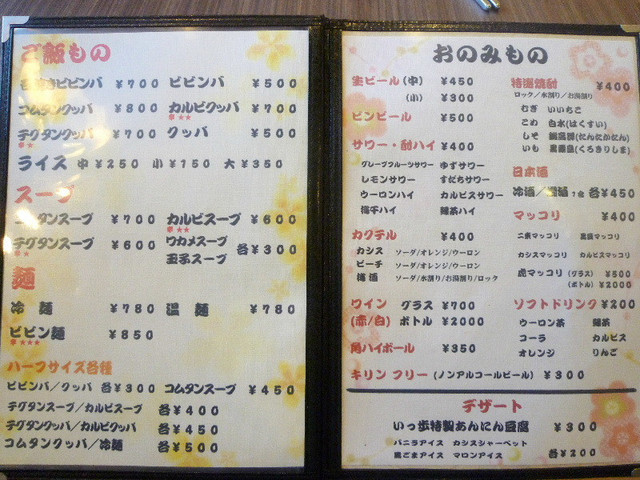 ご飯もの
ビビンバ ¥700 ビビンバ ¥500
コムタンクッパ ¥800 カルビクッパ ¥700
テグタンクッパ ¥700 クッパ ¥500
ライス 中¥250 小¥150 大¥350
スープ
タンスープ ¥700 カルビスープ ¥600
テグタンスープ ¥600 ワカメスープ
玉子スープ 各¥300
麺
冷麺 ¥780 温麺 ¥780
ビビン麺 ¥850
ハーフサイズ各種
ビビンバ/クッパ 各¥300 コムタンスープ ¥450
テグタンスープ/カルビスープ 各¥400
テグタンクッパ/カルビクッパ 各¥450
コムタンクッパ/冷麺 各¥500
おのみもの
生ビール(中) ¥450
(小) ¥300
ビンビール ¥500
サワー・酎ハイ ¥400
グレープフルーツサワー ゆずサワー
レモンサワー すだちサワー
ウーロンハイ カルピスサワー
梅干ハイ 緑茶ハイ
カクテル ¥400
カシス ソーダ/オレンジ/ウーロン
ピーチ ソーダ/オレンジ/ウーロン
梅酒 ソーダ/水割り/お湯割り/ロック
ワイン グラス ¥700
(赤/白) ボトル ¥2000
角ハイボール ¥350
キリン フリー(ノンアルコールビール) ¥300
特選焼酎 ¥400
ロック/水割り/お湯割り
むぎ いいちこ
こめ 白水(はくすい)
しそ 鍛高譚(たんたかたん)
いも 黒霧島(くろきりしま)
日本酒
冷酒/ 1合 各¥450
マッコリ ¥400
二東マッコリ 黒豆マッコリ
カシスマッコリ カルピスマッコリ
虎マッコリ(グラス) ¥500
(ボトル) ¥2000
ソフトドリンク ¥200
ウーロン茶 緑茶
コーラ カルピス
オレンジ りんご
デザート
いっ歩特製あんにん豆腐 ¥300
バニラアイス カシスシャーベット
黒ごまアイス マロンアイス 各¥200